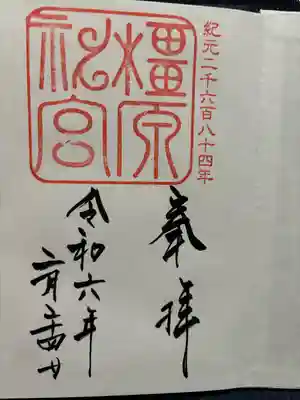 紀元二千六百八十四年
橿原
神宮
奉拝
令和六年
二月二十四日